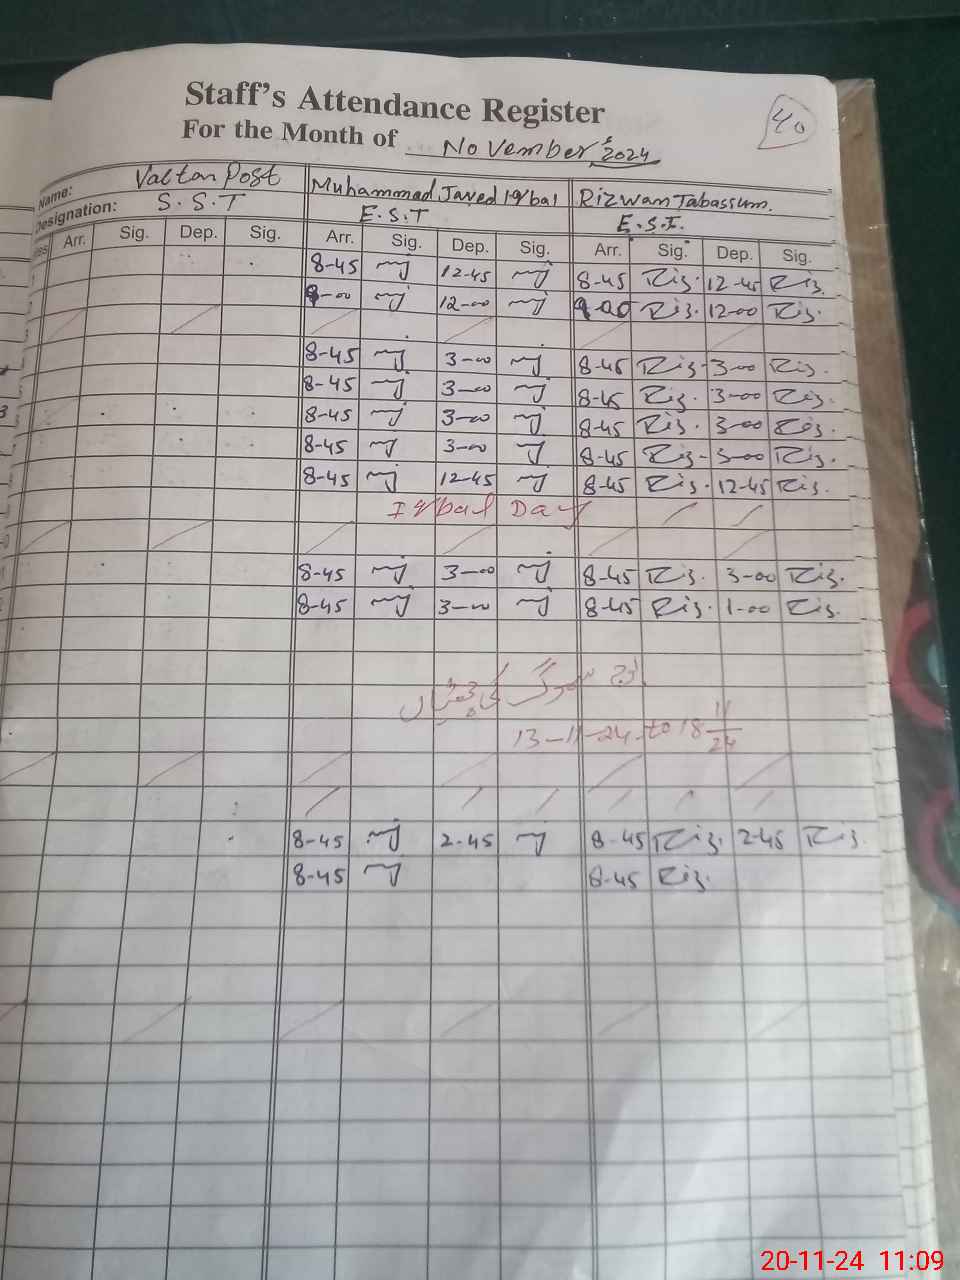 Staff's Attendance Register
40
For the Month of November, 2024
Name: Muhammad Javed Iqbal Rizwan Tabassum.
Designation: S.S.T E.S.T
Arr. Sig. Dep. Sig. Arr. Sig. Dep. Sig. Arr. Sig. Dep. Sig.
8-45 12-45 8-45 Riz. 12-45 Riz.
12-00 Riz. 12-00 Riz.
8-45 3-00 8-45 Riz. 3-00 Riz.
8-45 3-00 8-45 Riz. 3-00 Riz.
8-45 3-00 8-45 Riz. 3-00 Riz.
8-45 3-00 8-45 Riz. 3-00 Riz.
8-45 12-45 8-45 Riz. 12-45 Riz.
Iqbal Day
8-45 3-00 8-45 Riz. 3-00 Riz.
8-45 3-00 8-45 Riz. 1-00 Riz.
سموگ کی چھٹیاں
13-11-24 to 18 11/24
8-45 2-45 8-45 Riz. 2-45 Riz.
8-45 8-45 Riz.
20-11-24 11:09